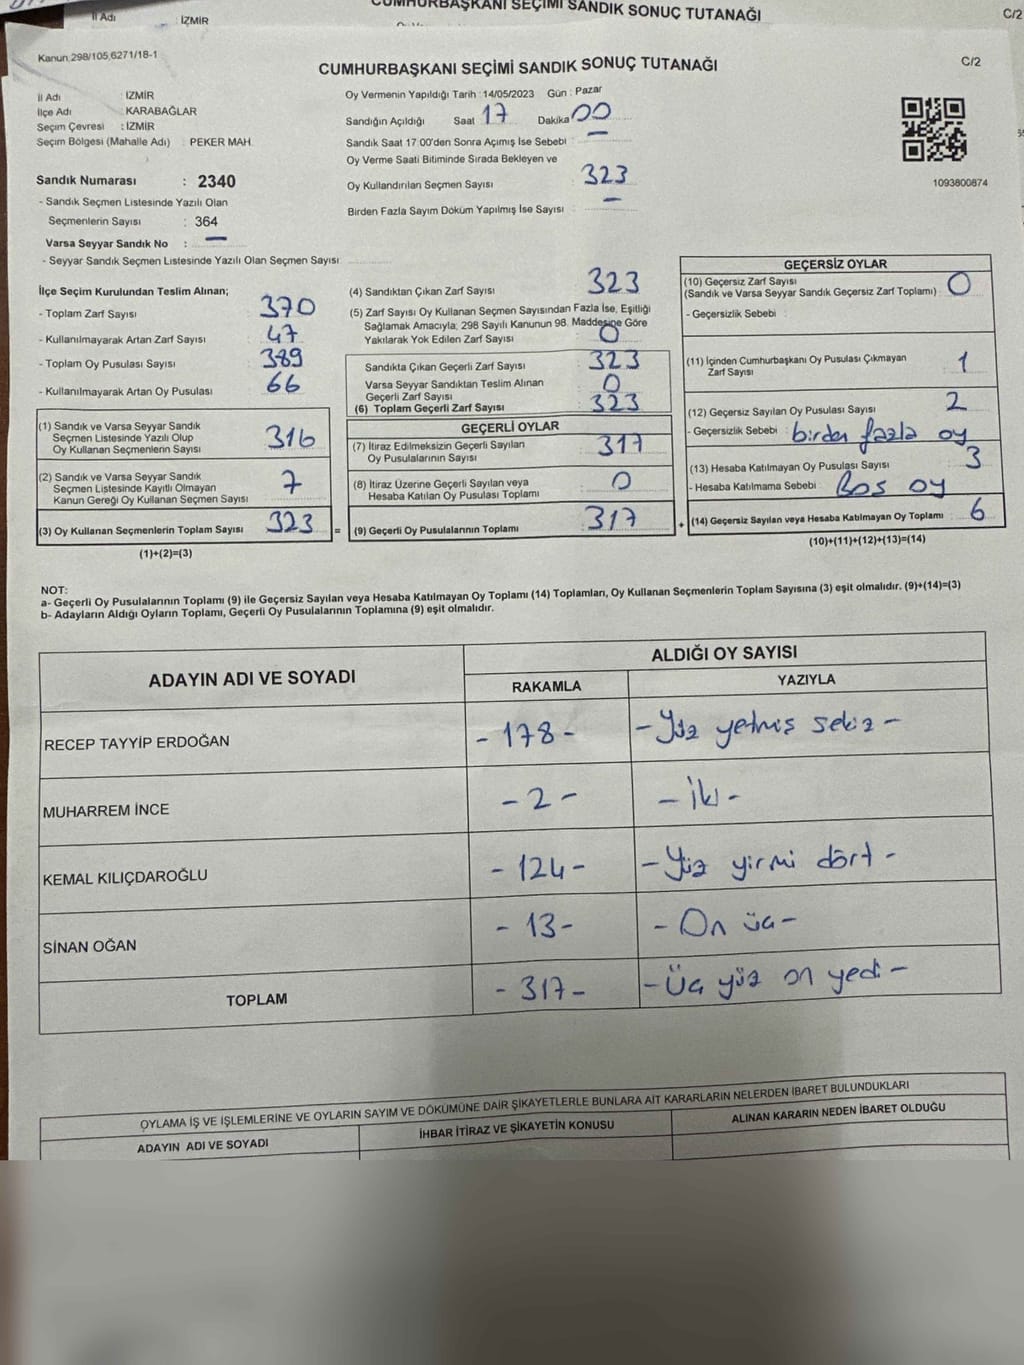 CUMHURBAŞKANI SEÇİMİ SANDIK SONUÇ TUTANAĞI
C/2
İl Adı : İZMİR
Kanun,298/105,6271/18-1
CUMHURBAŞKANI SEÇİMİ SANDIK SONUÇ TUTANAĞI
C/2
İl Adı : İZMİR
İlçe Adı : KARABAĞLAR
Seçim Çevresi : İZMİR
Seçim Bölgesi (Mahalle Adı) : PEKER MAH.
Sandık Numarası : 2340
- Sandık Seçmen Listesinde Yazılı Olan
Seçmenlerin Sayısı : 364
Varsa Seyyar Sandık No : —
- Seyyar Sandık Seçmen Listesinde Yazılı Olan Seçmen Sayısı
Oy Vermenin Yapıldığı Tarih : 14/05/2023 Gün : Pazar
Sandığın Açıldığı Saat 17 Dakika 00
Sandık Saat 17:00'den Sonra Açımış İse Sebebi : —
Oy Verme Saati Bitiminde Sırada Bekleyen ve
Oy Kullandırılan Seçmen Sayısı 323
Birden Fazla Sayım Döküm Yapılmış İse Sayısı : —
1093800874
İlçe Seçim Kurulundan Teslim Alınan;
- Toplam Zarf Sayısı 370
- Kullanılmayarak Artan Zarf Sayısı 47
- Toplam Oy Pusulası Sayısı 389
- Kullanılmayarak Artan Oy Pusulası 66
(1) Sandık ve Varsa Seyyar Sandık
Seçmen Listesinde Yazılı Olup
Oy Kullanan Seçmenlerin Sayısı 316
(2) Sandık ve Varsa Seyyar Sandık
Seçmen Listesinde Kayıtlı Olmayan
Kanun Gereği Oy Kullanan Seçmen Sayısı 7
(3) Oy Kullanan Seçmenlerin Toplam Sayısı 323 =
(1)+(2)=(3)
(4) Sandıktan Çıkan Zarf Sayısı 323
(5) Zarf Sayısı Oy Kullanan Seçmen Sayısından Fazla İse, Eşitliği
Sağlamak Amacıyla; 298 Sayılı Kanunun 98. Maddesine Göre
Yakılarak Yok Edilen Zarf Sayısı 0
Sandıkta Çıkan Geçerli Zarf Sayısı 323
Varsa Seyyar Sandıktan Teslim Alınan
Geçerli Zarf Sayısı 0
(6) Toplam Geçerli Zarf Sayısı 323
GEÇERLİ OYLAR
(7) İtiraz Edilmeksizin Geçerli Sayılan
Oy Pusulalarının Sayısı 317
(8) İtiraz Üzerine Geçerli Sayılan veya
Hesaba Katılan Oy Pusulası Toplamı 0
(9) Geçerli Oy Pusulalarının Toplamı 317 +
GEÇERSİZ OYLAR
(10) Geçersiz Zarf Sayısı
(Sandık ve Varsa Seyyar Sandık Geçersiz Zarf Toplamı) : 0
- Geçersizlik Sebebi :
(11) İçinden Cumhurbaşkanı Oy Pusulası Çıkmayan
Zarf Sayısı 1
(12) Geçersiz Sayılan Oy Pusulası Sayısı 2
- Geçersizlik Sebebi : birden fazla oy
(13) Hesaba Katılmayan Oy Pusulası Sayısı 3
- Hesaba Katılmama Sebebi : Bos oy
(14) Geçersiz Sayılan veya Hesaba Katılmayan Oy Toplamı : 6
(10)+(11)+(12)+(13)=(14)
NOT:
a- Geçerli Oy Pusulalarının Toplamı (9) ile Geçersiz Sayılan veya Hesaba Katılmayan Oy Toplamı (14) Toplamları, Oy Kullanan Seçmenlerin Toplam Sayısına (3) eşit olmalıdır. (9)+(14)=(3)
b- Adayların Aldığı Oyların Toplamı, Geçerli Oy Pusulalarının Toplamına (9) eşit olmalıdır.
ADAYIN ADI VE SOYADI
ALDIĞI OY SAYISI
RAKAMLA YAZIYLA
RECEP TAYYİP ERDOĞAN - 178 - - Yüz yetmiş sekiz -
MUHARREM İNCE - 2 - - İki -
KEMAL KILIÇDAROĞLU - 124 - - Yüz yirmi dört -
SİNAN OĞAN - 13 - - On üç -
TOPLAM - 317 - - Üç yüz on yedi -
OYLAMA İŞ VE İŞLEMLERİNE VE OYLARIN SAYIM VE DÖKÜMÜNE DAİR ŞİKAYETLERLE BUNLARA AİT KARARLARIN NELERDEN İBARET BULUNDUKLARI
ADAYIN ADI VE SOYADI
İHBAR İTİRAZ VE ŞİKAYETİN KONUSU
ALINAN KARARIN NEDEN İBARET OLDUĞU